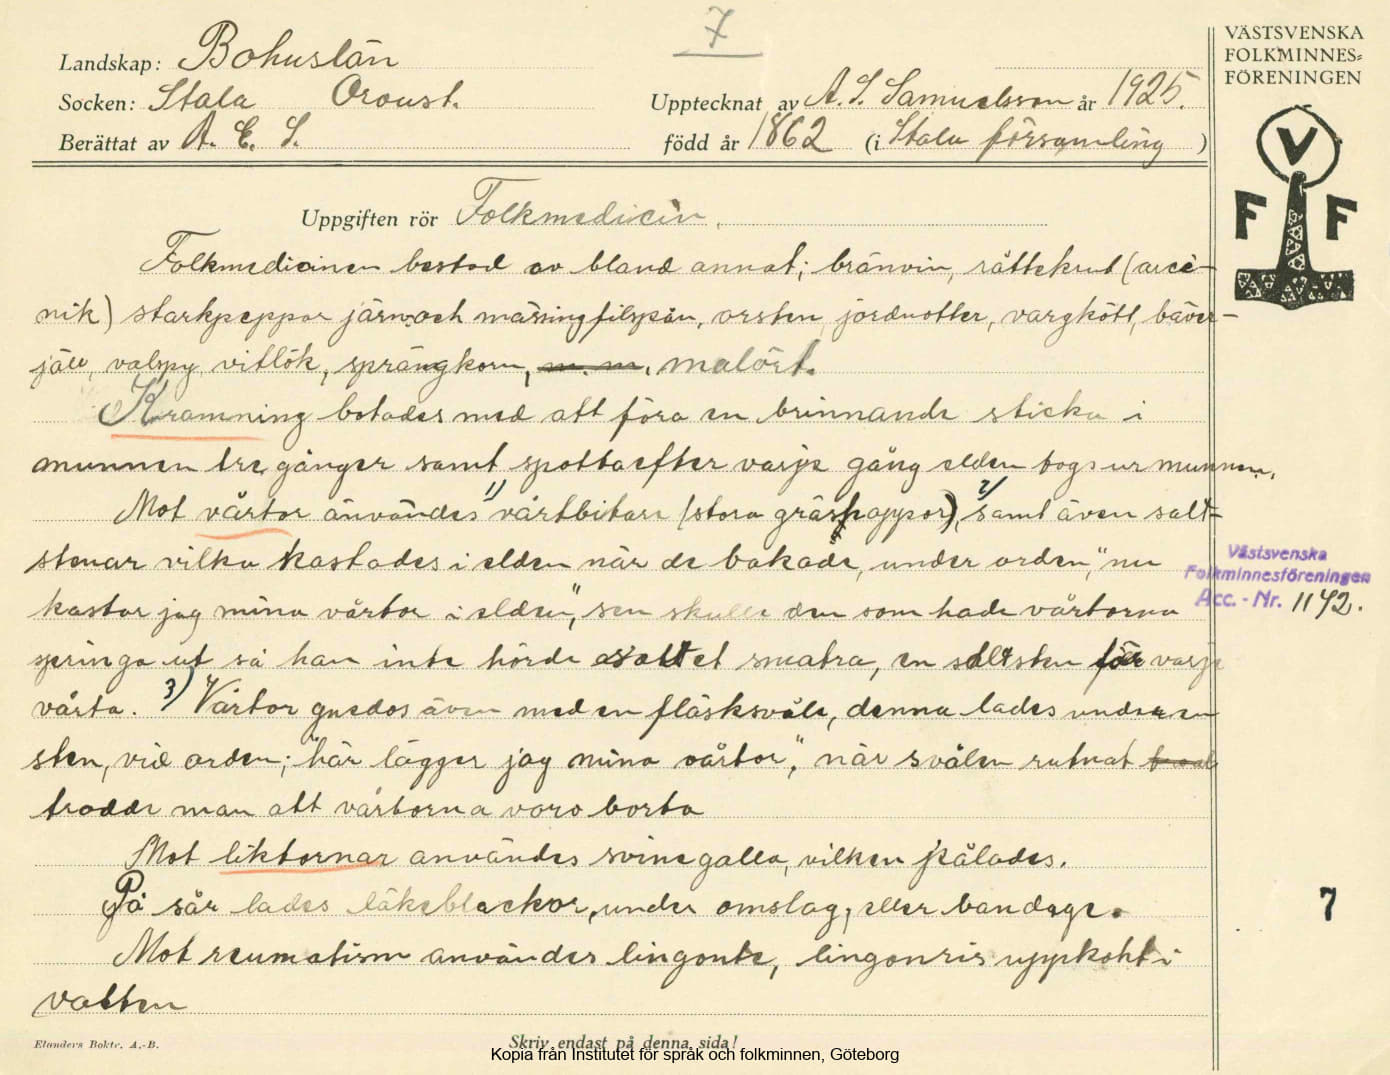 7
VÄSTSVENSKA
FOLKMINNES=
FÖRENINGEN
Landskap: Bohuslän
Socken: Stala Oroust. Upptecknat av A. S. Samuelsson år 1925.
Berättat av A. E. S. född år 1862 (i Stala församling )
V
F F
Uppgiften rör Folkmedicin.
Folkmedicinen bestod av bland annat; bränvin, råttekrut (arcé-
nik) starkpeppar järn och mässingfilspån, orsten, jordnötter, vargkött, bäver-
jäll, valspy, vitlök, sprängkorn, m. m. malört.
Kramning botades med att föra en brinnande sticka i
munnen tre gånger samt spotta efter varje gång elden togs ur munnen.
Mot vårtor användes 1) vårtbitare (stora gräshoppor), 2) samt även salt=
stenar vilka kastades i elden när de bakade, under orden, "nu
kastar jag mina vårtor i elden", sen skulle den som hade vårtorna
springa ut så han inte hörde saltet smatra, en saltsten för varje
vårta. 3) Vårtor gnedos även med en fläsksvåle, denna lades under en
sten, vid orden; "här lägger jag mina vårtor", när svålen rutnat
trodde man att vårtorna voro borta
Mot liktornar användes svinegalla, vilken pålades.
På sår lades läkeblackor, under omslag, eller bandage.
Mot reumatism användes lingonte, lingonris uppkokt i
vatten
Västsvenska
Folkminnesföreningen
Acc. - Nr. 1142.
7
Elanders Boktr. A.-B.
Skriv endast på denna sida!
Kopia från Institutet för språk och folkminnen, Göteborg